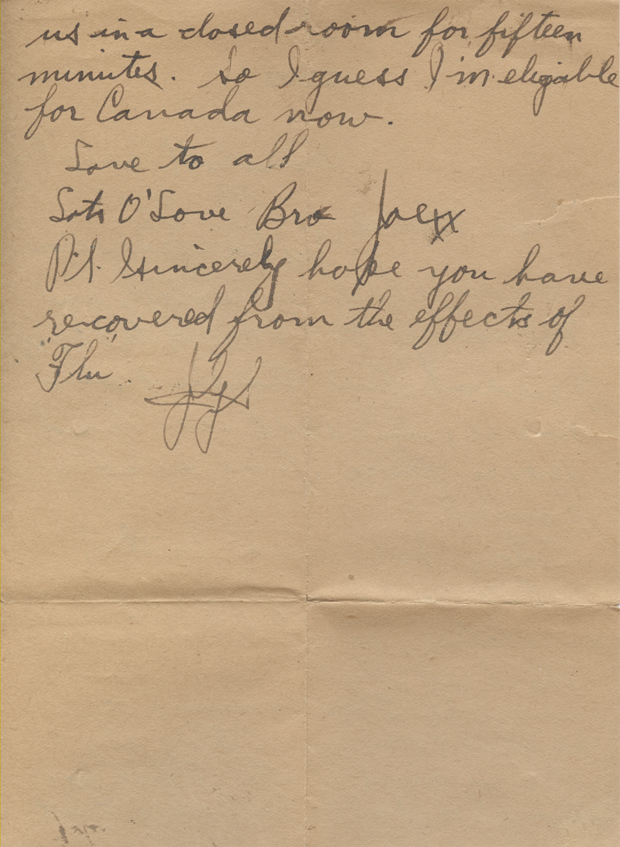 us in a closed room for fifteen
minutes. So I guess I'm eligable
for Canada now.
Love to all
Lots O'Love Bro Joe xx
P.S. I sincerely hope you have
recovered from the effects of
"Flu".